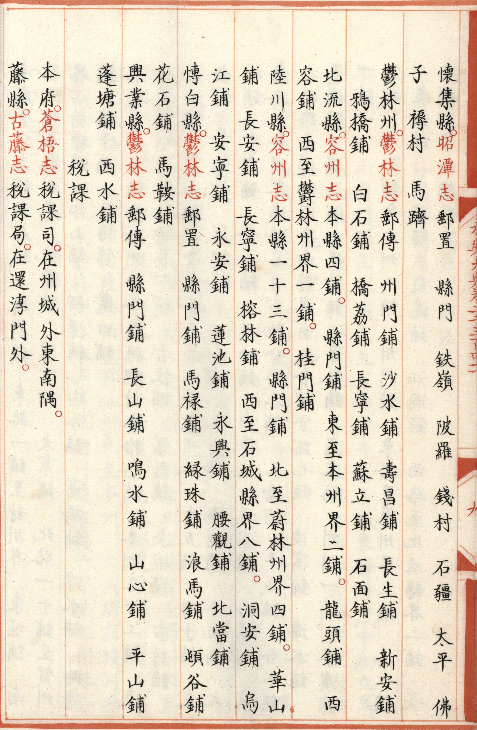 懷集縣。昭潭志郵置 縣門 鉄嶺 陂羅 錢村 石疆 太平 佛
子 馬躋
鬱林州。鬱林志郵傳 州門鋪 沙水鋪 壽昌鋪 長生鋪 新安鋪
鴉橋鋪 白石鋪 橋荔鋪 長寧鋪 蘇立鋪 石面鋪
北流縣。容州志本縣四鋪。縣門鋪 東至本州界二鋪。龍頭鋪 西
容鋪 西至欝林州界一鋪。桂門鋪
陸川縣。容州志本縣一十三鋪。縣門鋪 北至蔚林州界四鋪。華山
鋪 長安鋪 長寧鋪 榕林鋪 西至石城縣界八鋪。洞安鋪 烏
江鋪 安寧鋪 永安鋪 蓮池鋪 永興鋪 腰觀鋪 北當鋪
慱白縣。鬱林志郵置 縣門鋪 馬禄鋪 緑珠鋪 浪馬鋪 頓谷鋪
花石鋪 馬鞍鋪
興業縣。鬱林志郵傳 縣門鋪 長山鋪 鳴水鋪 山心鋪 平山鋪
蓬塘鋪 西水鋪
税課
本府。蒼梧志税課司。在州城外東南隅。
藤縣。古藤志税課局。在還淳門外。